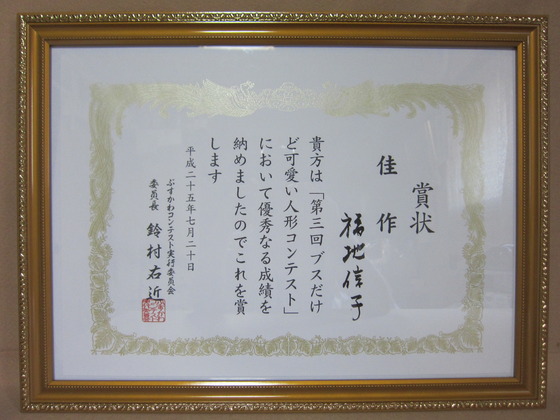 賞状
佳作
福地信子
貴方は「第三回ブスだけ
ど可愛い人形コンテスト」
において優秀なる成績を
納めましたのでこれを賞
します
平成二十五年七月二十日
ぶすかわコンテスト実行委員会
委員長 鈴村右近